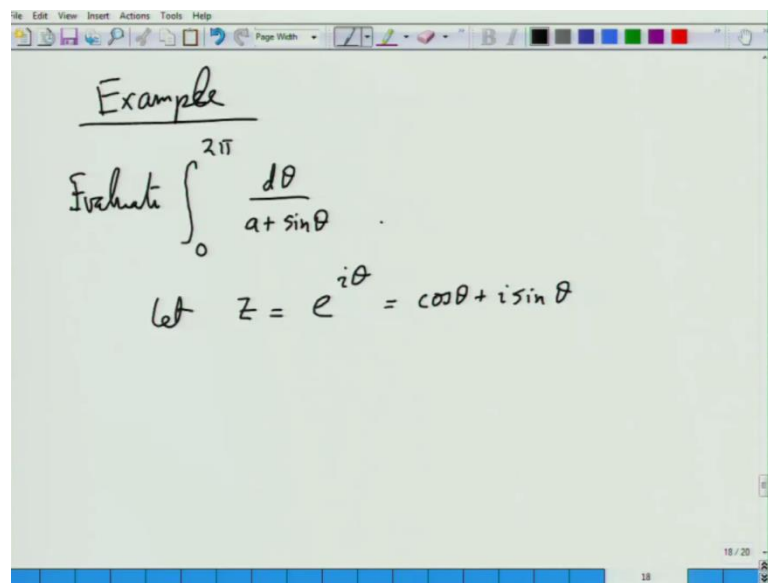 File Edit View Insert Actions Tools Help
Page Width
B I
Example
Evaluate ∫₀^{2π} dθ / (a + sinθ) .
let z = e^{iθ} = cosθ + i sin θ
18 / 20
18